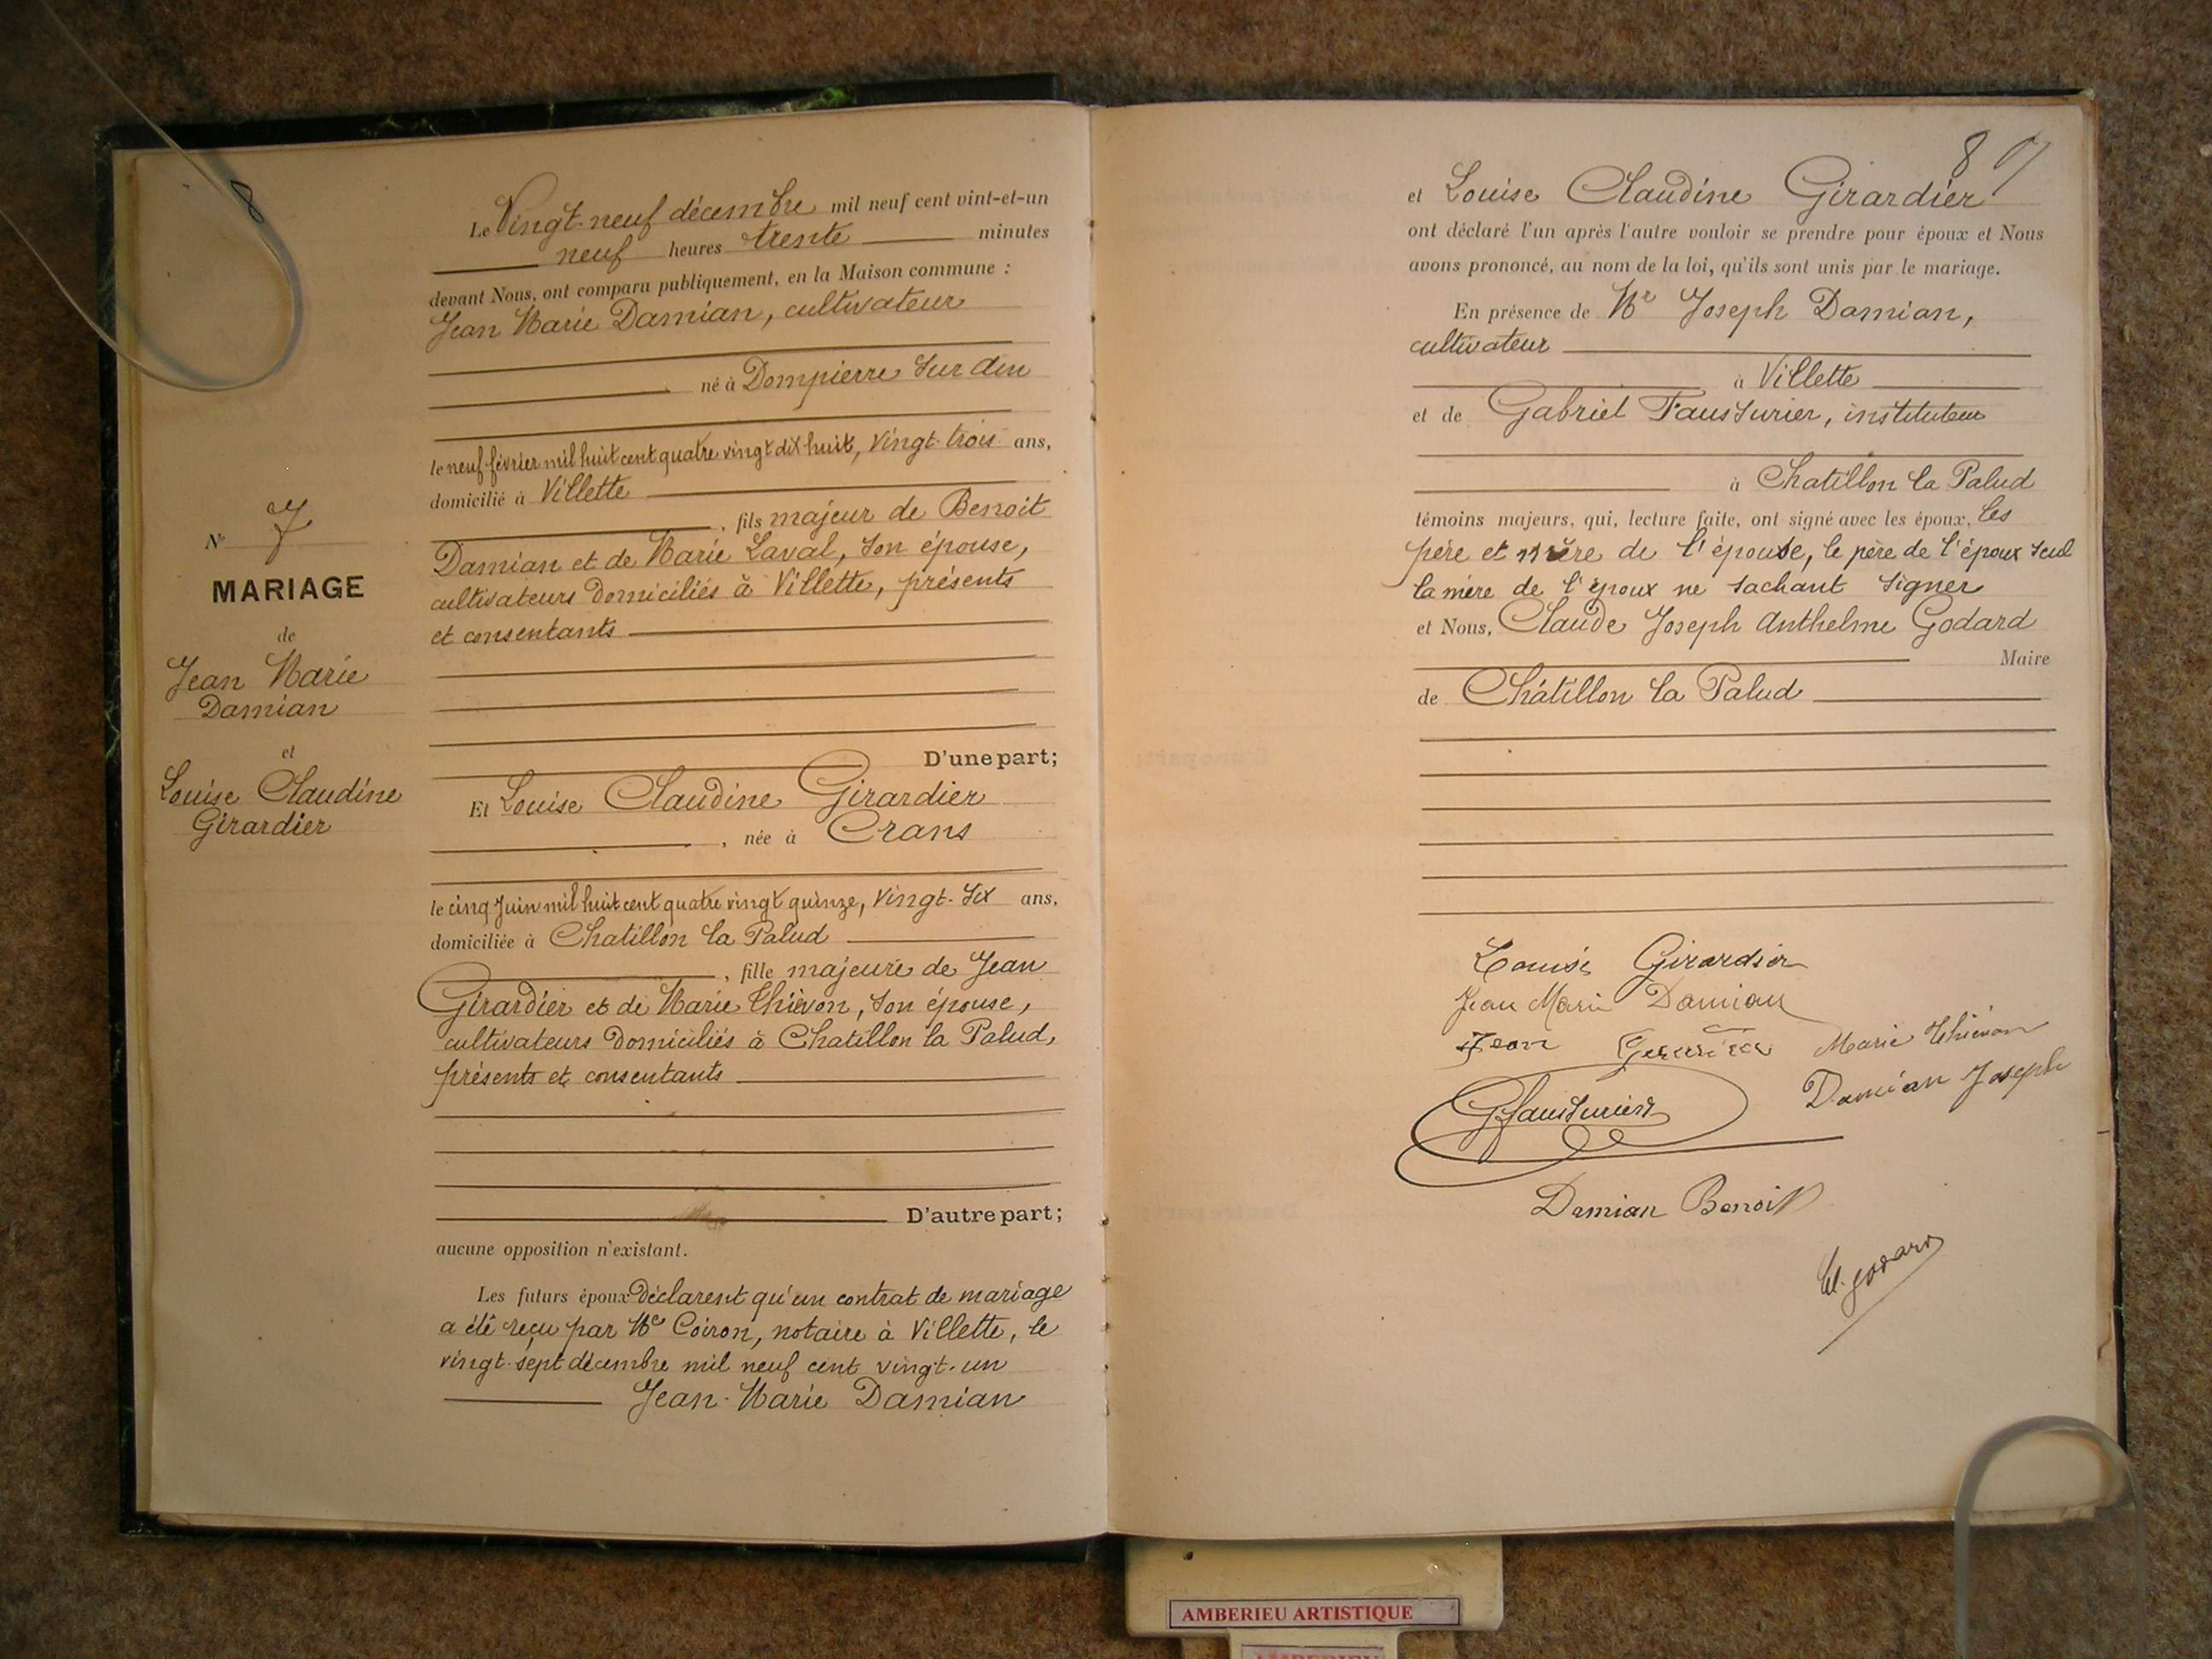 8
Le Vingt-neuf décembre mil neuf cent vint-et-un
neuf heures trente minutes
devant Nous, ont comparu publiquement, en la Maison commune :
Jean Marie Damian, cultivateur
né à Dompierre sur Ain
le neuf février mil huit cent quatre vingt dix-huit, vingt-trois ans,
domicilié à Villette
, fils majeur de Benoit
Damian et de Marie Laval, son épouse,
cultivateurs domiciliés à Villette, présents
et consentants
D'une part;
Et Louise Claudine Girardier
, née à Crans
le cinq Juin mil huit cent quatre vingt quinze, vingt-six ans,
domiciliée à Chatillon la Palud
, fille majeure de Jean
Girardier et de Marie Thiévon, son épouse,
cultivateurs domiciliés à Chatillon la Palud,
présents et consentants
D'autre part;
aucune opposition n'existant.
Les futurs époux déclarent qu'un contrat de mariage
a été reçu par Me Coiron, notaire à Villette, le
vingt-sept décembre mil neuf cent vingt-un
Jean-Marie Damian
N° 7
MARIAGE
de
Jean Marie
Damian
et
Louise Claudine
Girardier
8
et Louise Claudine Girardier
ont déclaré l'un après l'autre vouloir se prendre pour époux et Nous
avons prononcé, au nom de la loi, qu'ils sont unis par le mariage.
En présence de Mr Joseph Damian,
cultivateur
à Villette
et de Gabriel Fausturier, instituteur
à Chatillon la Palud
témoins majeurs, qui, lecture faite, ont signé avec les époux, les
père et mère de l'épouse, le père de l'époux seul
la mère de l'époux ne sachant signer
et Nous, Claude Joseph Anthelme Godard
Maire
de Châtillon la Palud
Louise Girardier
Jean Marie Damian
Jean Marie Thiévon
GFausturier Damian Joseph
Damian Benoit
Cl. Godard
AMBERIEU ARTISTIQUE
AMBERIEU